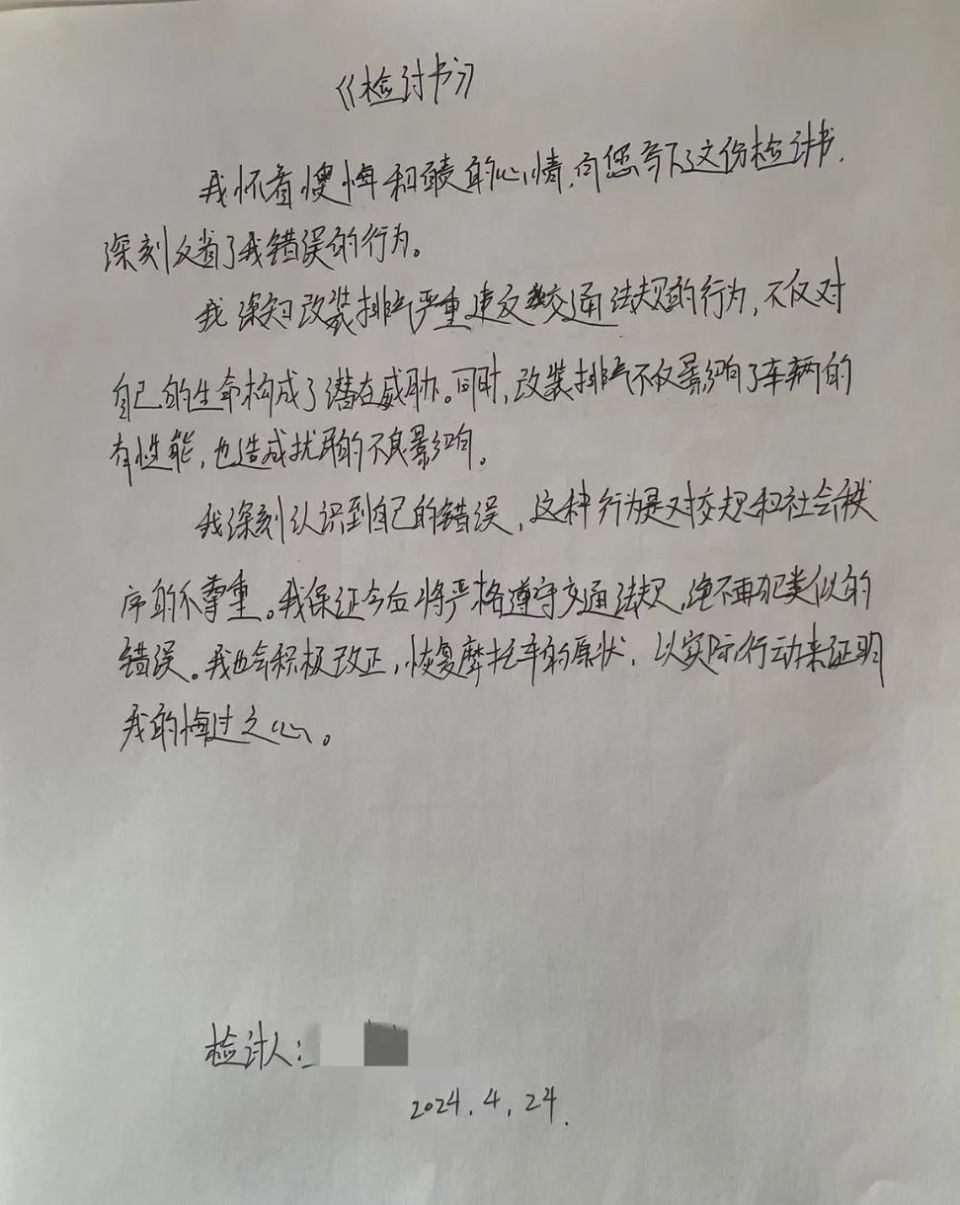 《检讨书》
我怀着懊悔和自责的心情,向您写下这份检讨书,
深刻反省了我错误的行为。
我深知改装排气严重违反交通法规的行为,不仅对
自己的生命构成了潜在威胁。同时,改装排气不仅影响了车辆的
有性能,也造成扰民的不良影响。
我深刻认识到自己的错误,这种行为是对交规和社会秩
序的不尊重。我保证今后将严格遵守交通法规,绝不再犯类似的
错误。我也会积极改正,恢复摩托车的原状,以实际行动来证明
我的悔过之心。
检讨人:
2024.4.24.